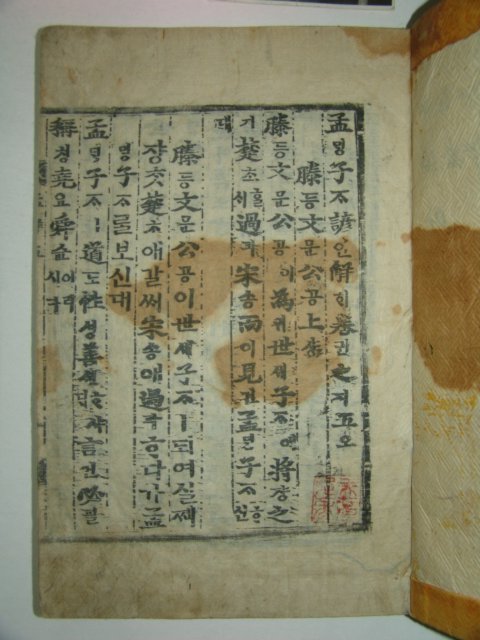 孟밍子ᄌᆞ諺언解ᄒᆡ卷권之지五오
滕등文문公공上샹
滕등文문公공이爲위世셰子ᄌᆞ애將쟝之지
楚초ᄒᆞᆯ시過과宋송而이見견孟밍子ᄌᆞᄒᆞ신
대
滕등文문公공이世셰子ᄌᆞㅣ되여실쩨
쟝ᄎᆞᆺ楚초애갈써宋송애過과ᄒᆞ다가孟
밍子ᄌᆞᄅᆞᆯ보신대
孟밍子ᄌᆞㅣ道도性셩善션ᄒᆞ샤言언必필
稱칭堯요舜슌이러시다